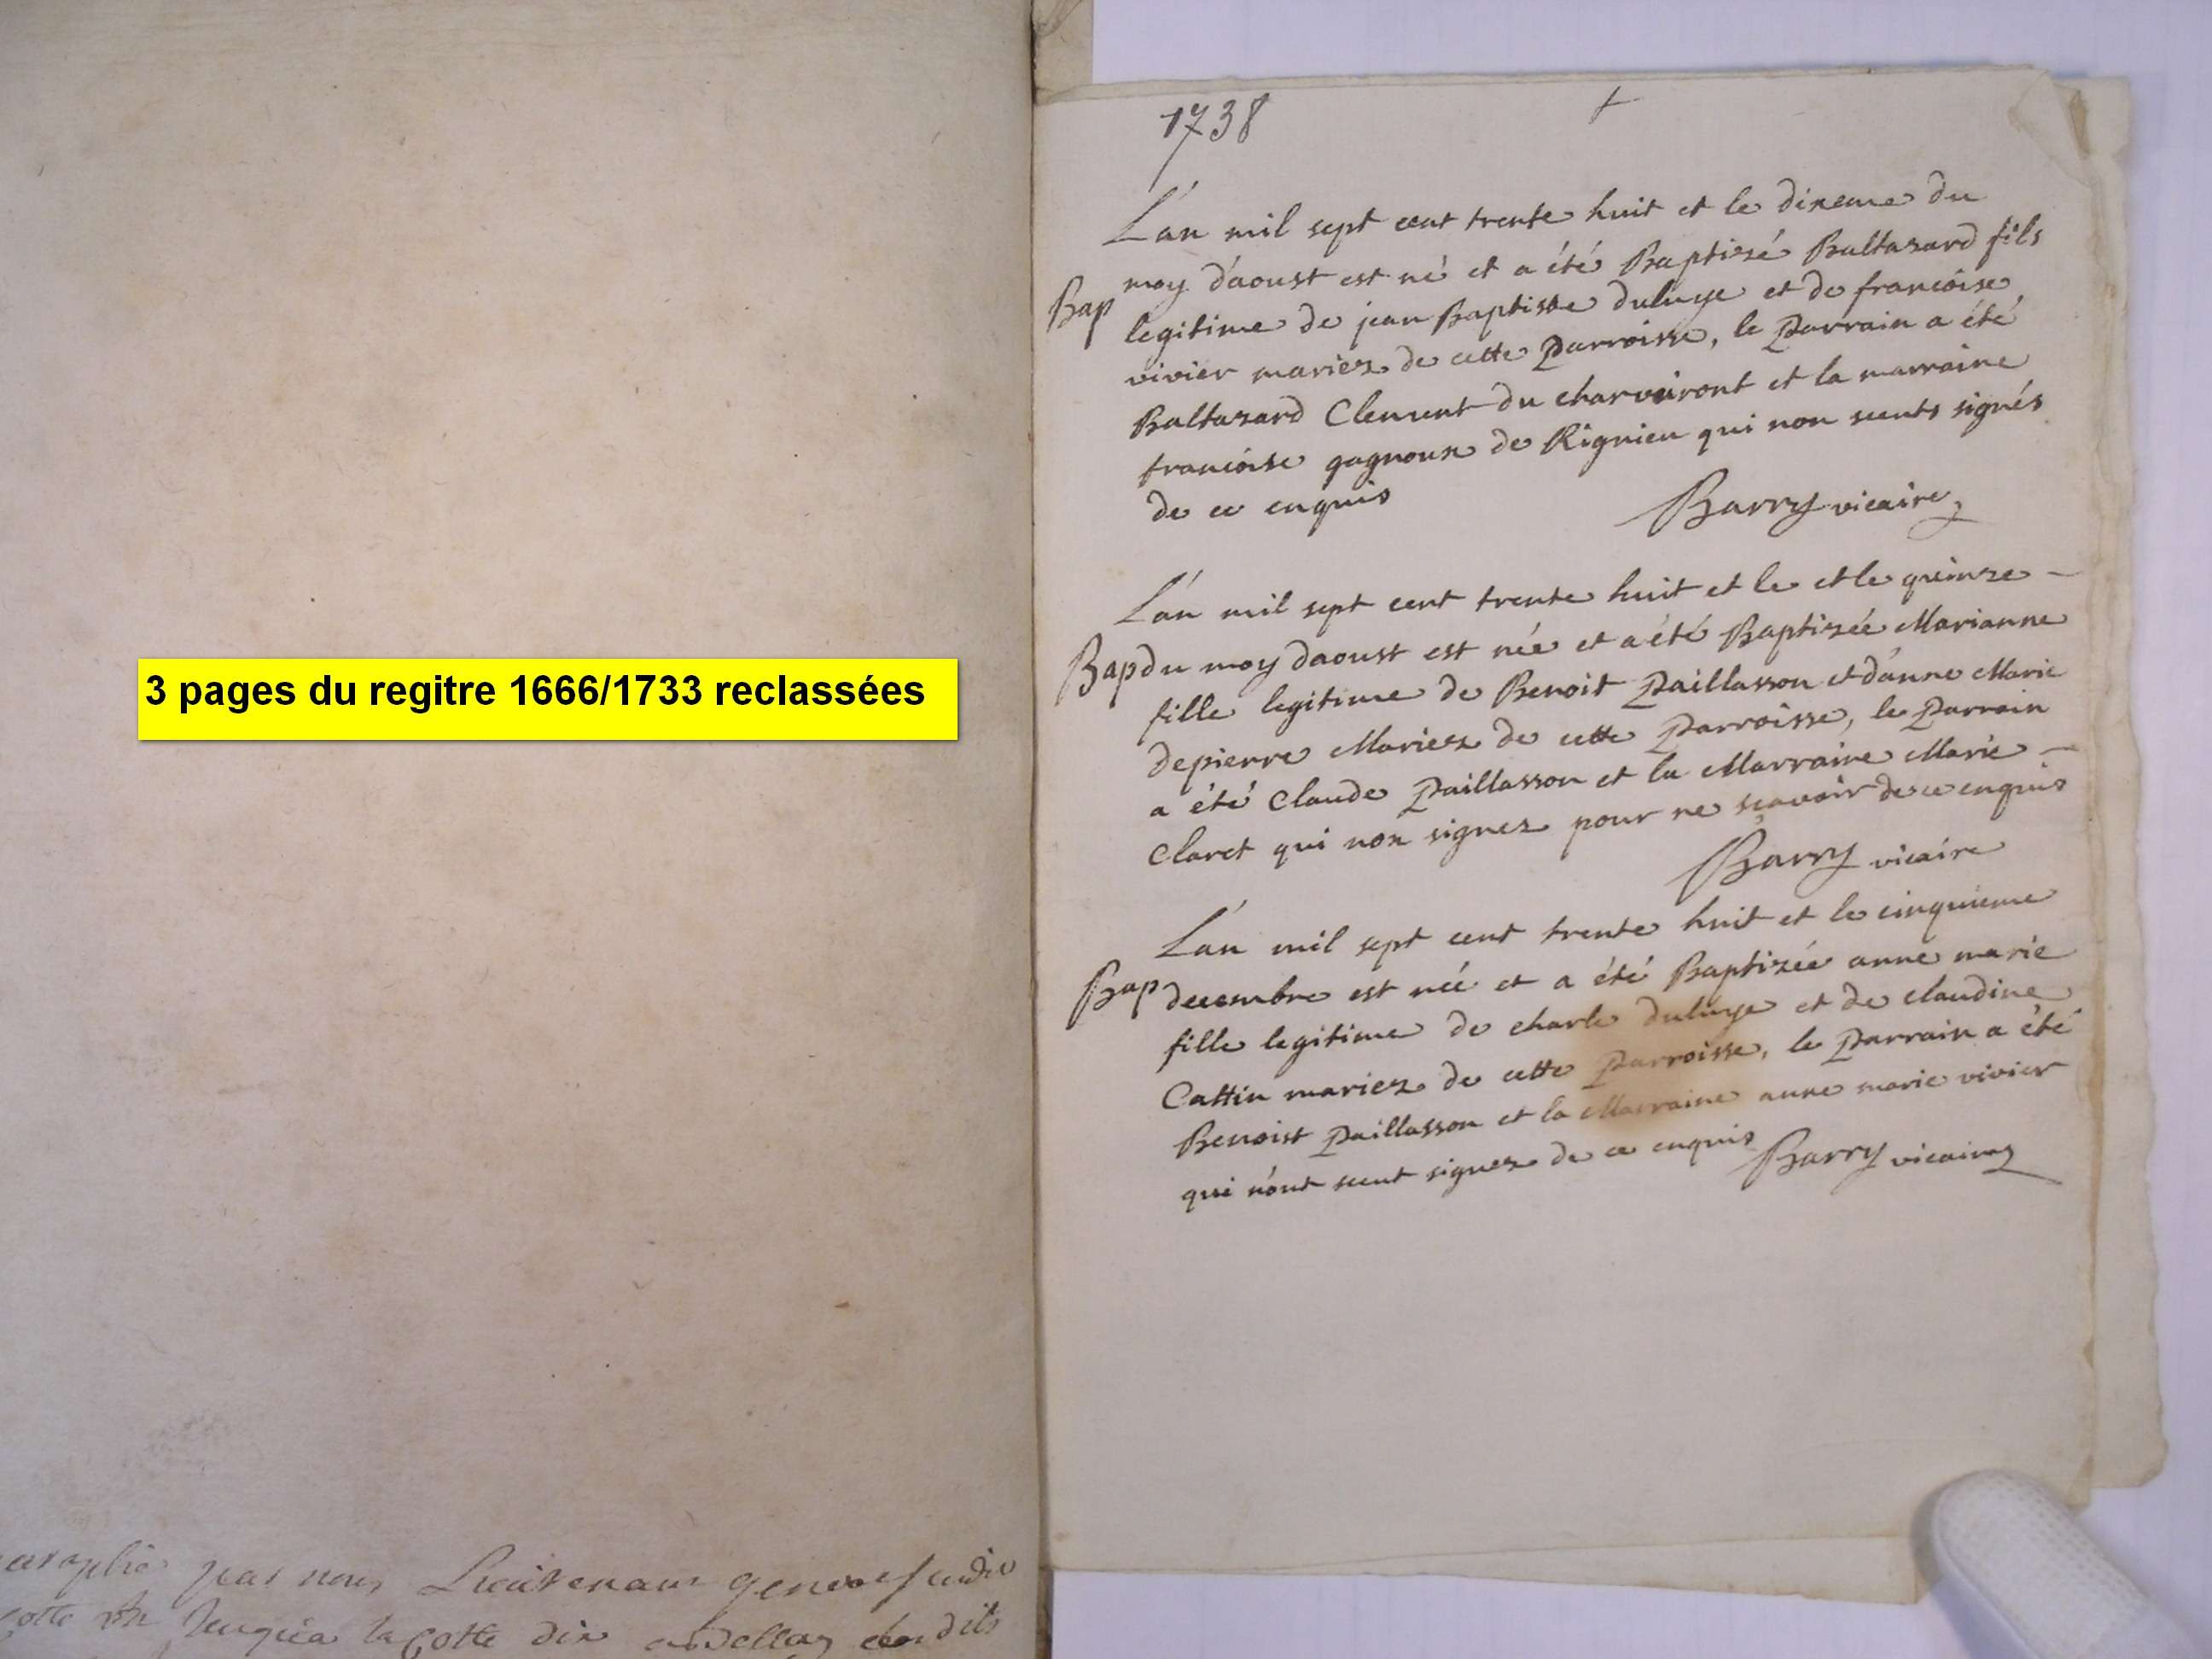 3 pages du regitre 1666/1733 reclassées
par nous Lieutenant general
1738
L'an mil sept cent trente huit et le dixeme du
Bap moy d'aoust est né et a été Baptisé Baltazard fils
legitime de jean Baptiste duluye et de francoise
vivier mariez de cette Parroisse, le Parrain a été
Baltazard Clement du charvoiront et la marraine
francoise gagnoux de Rignieu qui non sceuts signés
de ce enquis
Barry vicaire
L'an mil sept cent trente huit et le et le quinze
Bap du moy daoust est née et a été Baptizée Marianne
fille legitime de Benoit Paillasson et d'anne Marie
depierre Mariez de cette Parroisse, le Parrain
a été Claude Paillasson et la Marraine Marie
Claret qui non signez pour ne sçavoir de ce enquis
Barry vicaire
L'an mil sept cent trente huit et le cinquieme
Bap decembre est née et a été Baptizée anne marie
fille legitime de charle duluye et de claudine
Cattin mariez de cette Parroisse, le Parrain a été
Benoist Paillasson et la Marraine anne marie vivier
qui n'ont sceut signez de ce enquis
Barry vicaire